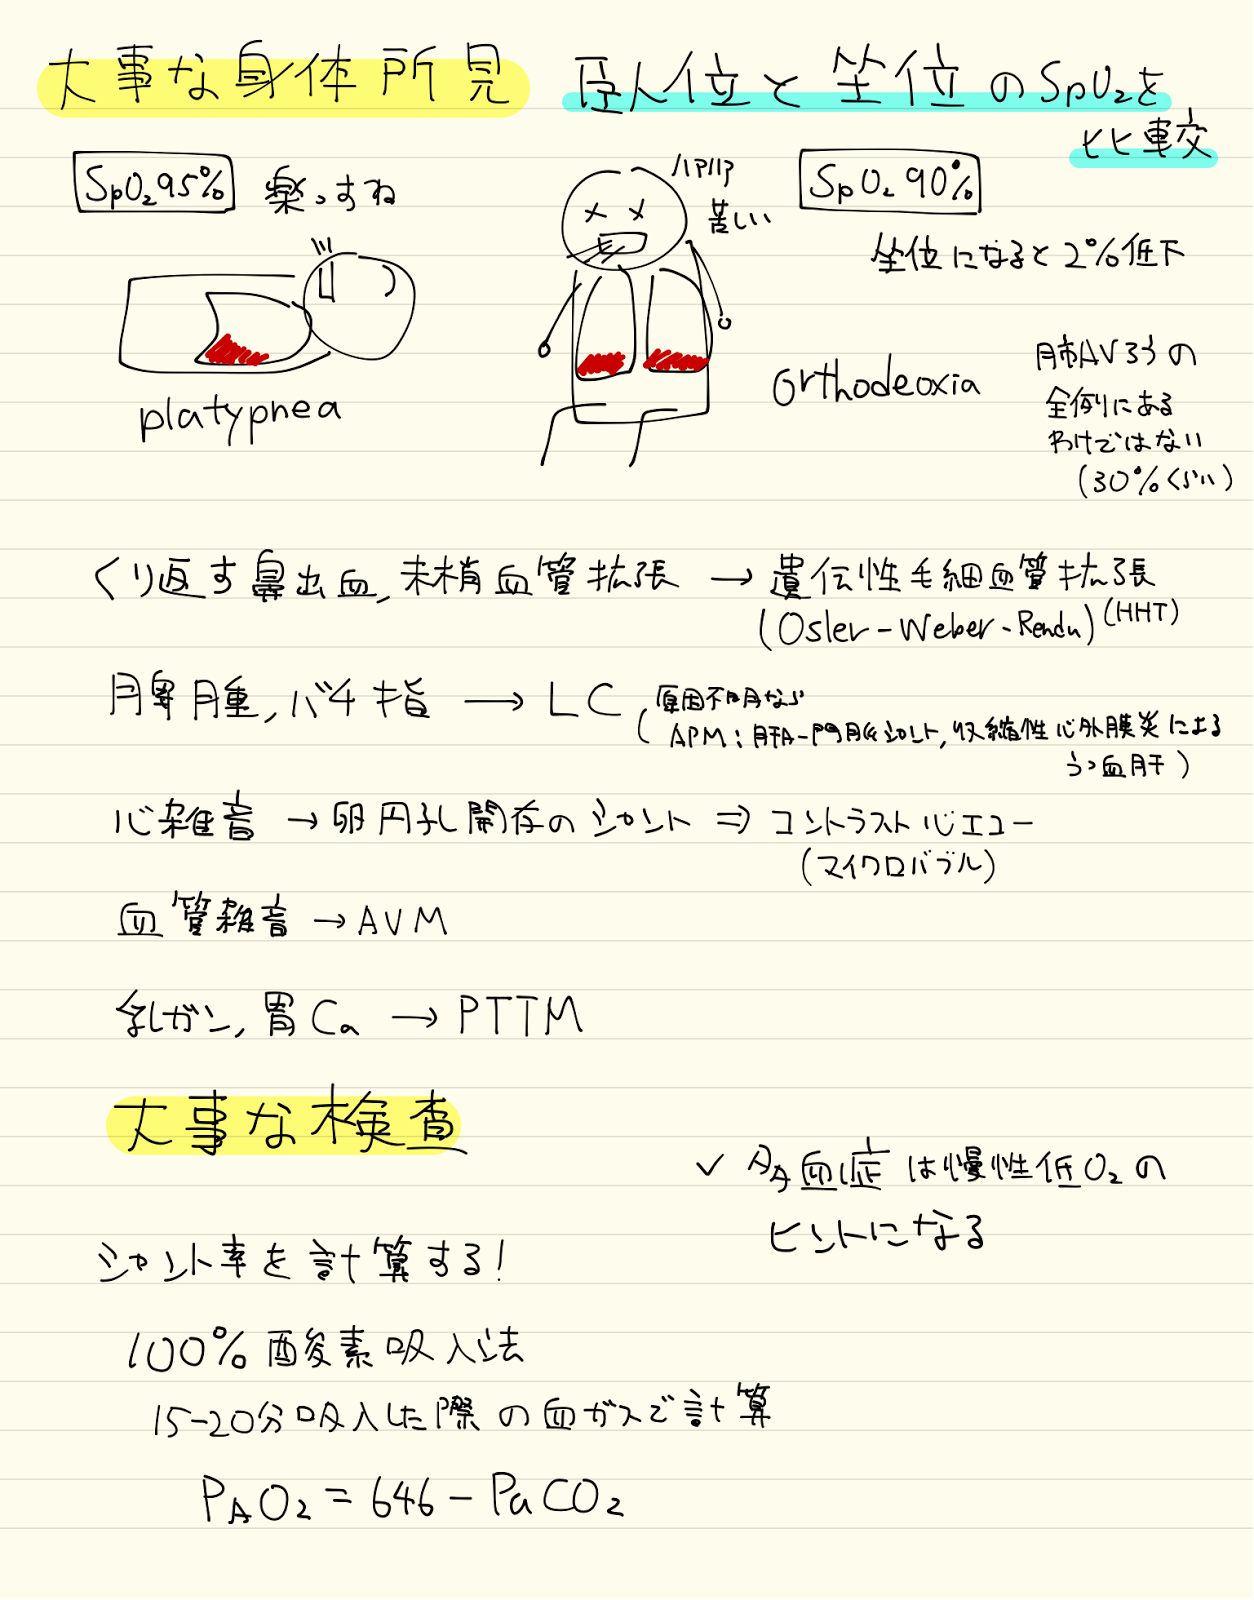 大事な身体所見
臥位と坐位のSpO₂を
比較
SpO₂95%
楽っすね
ハアハア
苦しい
SpO₂ 90%
坐位になると2%低下
platypnea
orthodeoxia
肺AVろうの
全例にある
わけではない
(30%くらい)
くり返す鼻出血,末梢血管拡張 → 遺伝性毛細血管拡張
(Osler-Weber-Rendu)(HHT)
脾腫,バチ指 → LC
(原因不明なら
APM:肝A-門脈シャント,収縮性心外膜炎による
うっ血肝)
心雑音 → 卵円孔開存のシャント ⇒ コントラスト心エコー
(マイクロバブル)
血管雑音 → AVM
乳ガン,胃Ca → PTTM
大事な検査
✓ 多血症は慢性低O₂の
ヒントになる
シャント率を計算する!
100%酸素吸入法
15-20分吸入した際の血ガスで計算
PAO₂=646-PaCO₂